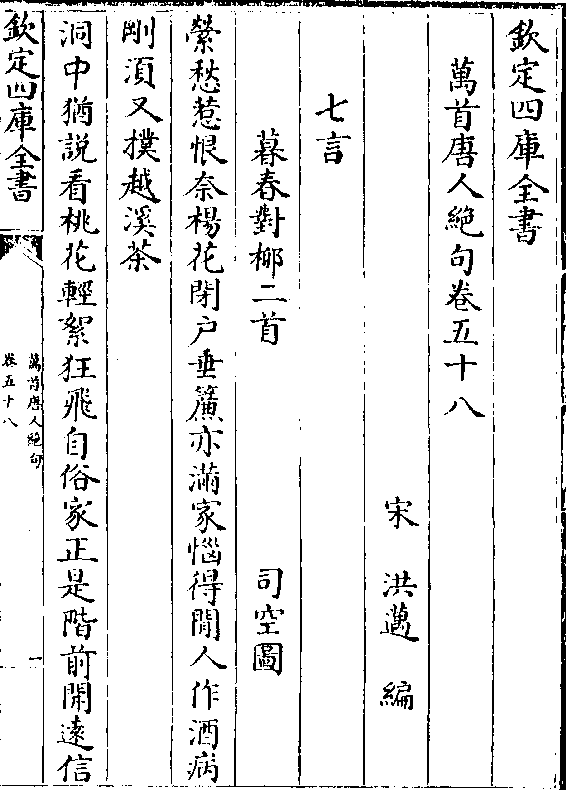 欽定四庫全書
萬首唐人絶句卷五十八
宋 洪邁 編
七言
暮春對柳二首 司空圖
縈愁惹恨奈楊花閉户垂簾亦滿家惱得閒人作酒病
剛須又撲越溪茶
洞中猶説看桃花輕絮狂飛自俗家正是階前開遠信
欽定四庫全書
萬首唐人絶句
卷五十八
一